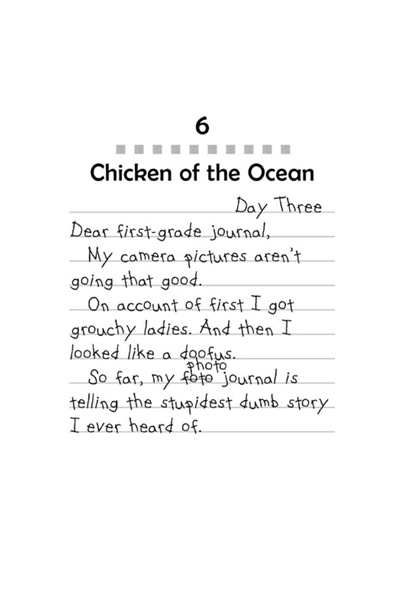 6
Chicken of the Ocean
Day Three
Dear first-grade journal,
My camera pictures aren't
going that good.
On account of first I got
grouchy ladies. And then I
looked like a doofus.
photo
So far, my foto journal is
telling the stupidest dumb story
I ever heard of.